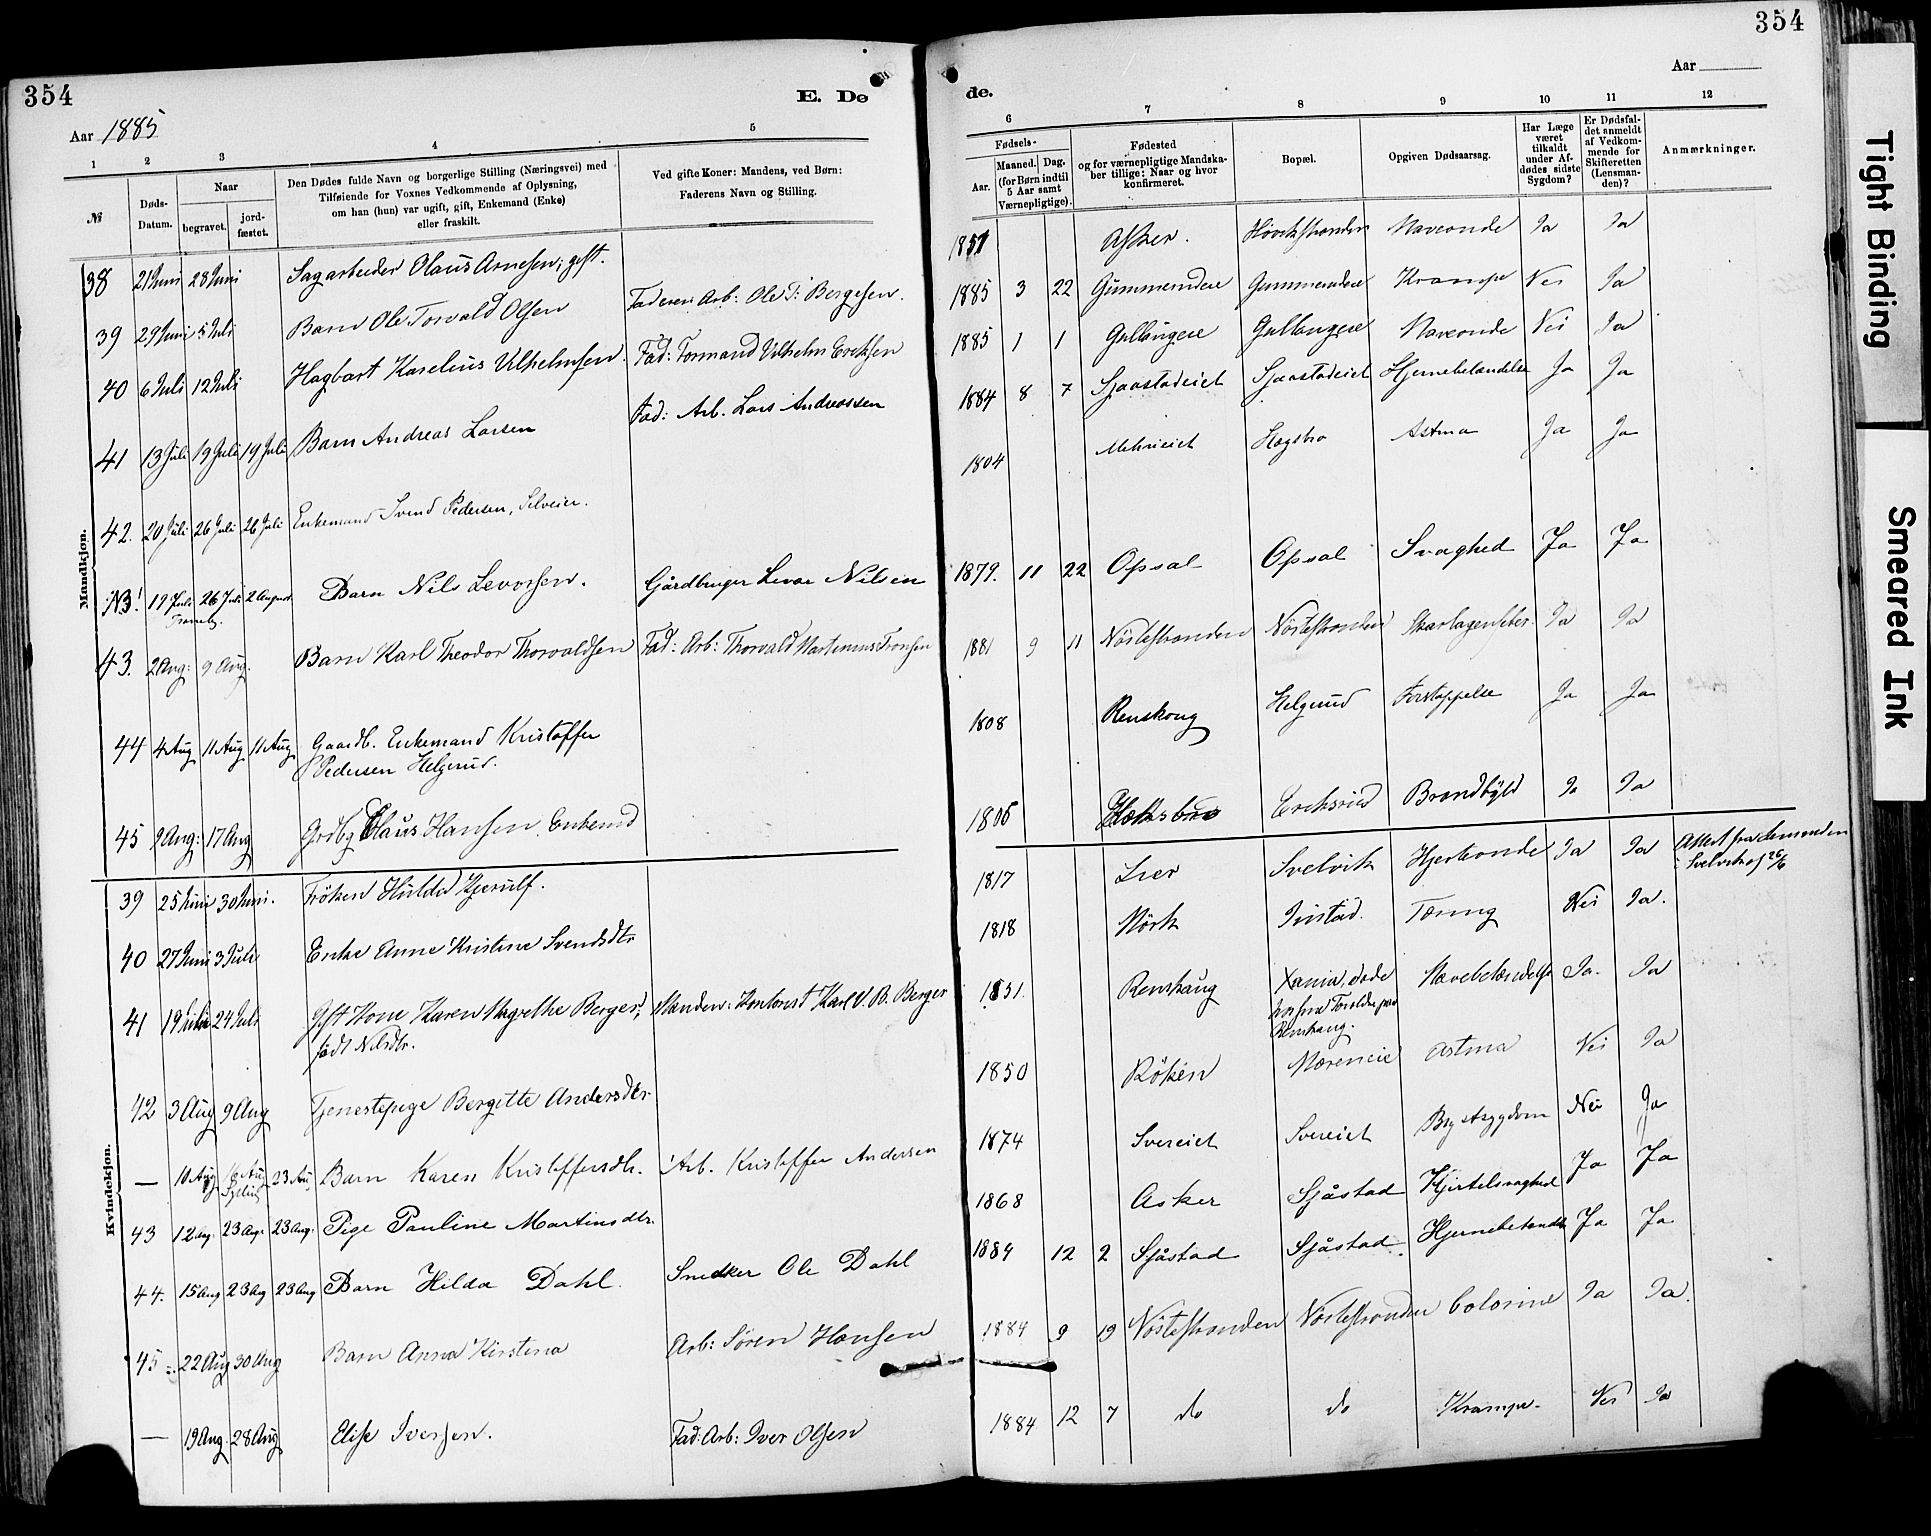 354
E. De
Aar 1885
1 2 3 4 5
№
Døds-
Datum.
Naar
begravet.
jord-
fæstet.
Den Dødes fulde Navn og borgerlige Stilling (Næringsvei) med
Tilføiende for Voxnes Vedkommende af Oplysning,
om han (hun) var ugift, gift, Enkemand (Enke)
eller fraskilt.
Ved gifte Koner: Mandens, ved Børn:
Faderens Navn og Stilling.
Mandkjøn.
38 21 Juni 28 Juni Sagarbeider Olaus Arnesen, gift.
39 29 Juni 5 Juli Barn Ole Torvald Olsen Faderen Arb: Ole T: Bergesen.
40 6 Juli 12 Juli Hagbart Karelius Vilhelmsen. Fad: Tormand Vilhelm Eriksen
41 13 Juli 19 Juli 19 Juli Barn Andreas Larsen Fad: Arb. Lars Andreassen
42. 20 Juli 26 Juli 26 Juli Enkemand Svend Pedersen, Selveier.
N3! 19 Juli 26 Juli 2 August Barn Nils Levorsen. Gårdbruger Levor Nilsen
43. 2 Aug: 9 Aug. Barn Karl Theodor Thorvaldsen Fad: Arb: Thorvald Martinius Fronsen
44 4 Aug 11 Aug 11 Aug Gaardb. Enkemand Kristoffer
Pedersen Helgerud.
45 9 Aug: 17 Aug Grdbg Claus Hansen. Enkemd
Kvindekjøn.
39 25 Juni 30 Juni. Frøken Hulda Kjerulf.
40 27 Juni 3 Juli Enke Anne Kristine Svendsdtr
41 19 Juli 24 Juli Gift Kone Karen Magrethe Berger, Manden: Kontorist Karl V. B. Berger
født Nilsdtr.
42 3 Aug 9 Aug Tjenestepige Bergitte Andersdtr.
— 10 Aug 16 Au 23 Au Barn Karen Kristoffersdtr. Arb. Kristoffer Andersen
43 12 Aug. 23 Aug. 23 Aug. Pige Pauline Martinsdtr.
44. 15 Aug 23 Aug 23 Aug Barn Hilda Dahl. Snedker Ole Dahl
45 22 Aug 30 Aug Barn Anna Kirstina Arb: Søren Hansen
— 19 Aug. 28 Aug Elise Iversen. Fad: Arb: Iver Olsen
354
de.
Aar
6 7 8 9 10 11 12
Fødsels-
Aar.
Maaned. Dag.
(for Børn indtil
5 Aar samt
Værnepligtige).
Fødested
og for værnepligtige Mandska-
ber tillige: Naar og hvor
konfirmeret.
Bopæl.
Opgiven Dødsaarsag.
Har Læge
været
tilkaldt
under Af-
dødes sidste
Sygdom?
Er Dødsfal-
det anmeldt
af Vedkom-
mende for
Skifteretten
(Lensman-
den)?
Anmærkninger.
1851 Asker. Høvikstranden Maveonde Ja Ja
1885 3 22 Gummerudeie Gummerudeie Krampe Nei Ja
1885 1 1 Gullaugeie Gullaugeie Maveonde Nei Ja
1884 8 7 Sjaastadeiet Sjaastadeiet Hjernebetændelse Ja Ja
1804 Hægsbro Astma Ja Ja
1879. 11 22 Opsal Opsal Svaghed Ja Ja
1881 9 11 Nøstestranden Nøstestranden Skarlagensfeber. Ja Ja
1808 Renskoug Helgerud Forstoppelse Ja Ja
1806 Eriksrud Brandbyld Ja Ja
1817 Lier Svelvik Hjerteonde Ja Ja Attest fra Lensmanden
i Svelvik af 26/6
1818 Mørk Instad. Tæring Nei Ja.
1851. Renskaug Xania, døde Mavebetændelse Ja. Ja
hos sine Forældre paa
Renskaug.
1850 Røken Mæreneie Astma Nei Ja
1874 Svereiet Svereiet Brystsygdom Nei Ja
1868 Asker Sjåstad Kjirtelsvaghed Ja Ja
1884 12 2 Sjåstad Sjåstad. Hjernebetændelse Ja Ja
1884 9 19 Nøstestranden Nøstestranden Colorine Ja Ja.
1884 12 7 do do Krampe. Nei Ja
Tight Binding
Smeared Ink